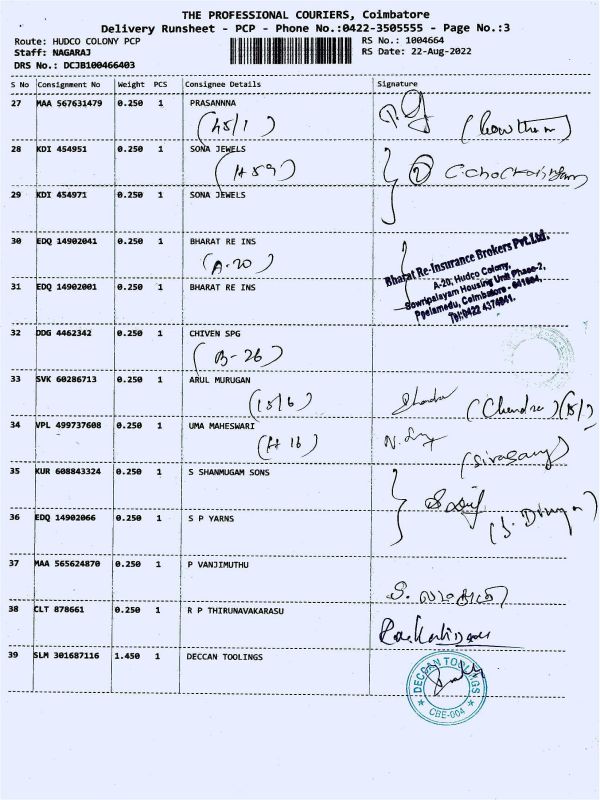 THE PROFESSIONAL COURIERS, Coimbatore
Delivery Runsheet - PCP - Phone No.:0422-3505555 - Page No.:3
Route: HUDCO COLONY PCP RS No.: 1004664
Staff: NAGARAJ RS Date: 22-Aug-2022
DRS No.: DCJB100466403
S No Consignment No Weight PCS Consignee Details Signature
27 MAA 567631479 0.250 1 PRASANNNA
28 KDI 454951 0.250 1 SONA JEWELS
(H 59)
29 KDI 454971 0.250 1 SONA JEWELS
30 EDQ 14902041 0.250 1 BHARAT RE INS
(A-20)
31 EDQ 14902001 0.250 1 BHARAT RE INS
Bharat Re-Insurance Brokers Pvt.Ltd.
A-20, Hudco Colony,
Sowripalayam Housing Unit Phase-2,
Peelamedu, Coimbatore - 641004.
Tel:0422 4374641.
32 DDG 4462342 0.250 1 CHIVEN SPG
(B-26)
33 SVK 60286713 0.250 1 ARUL MURUGAN
(15/6) (Chandra)
34 VPL 499737608 0.250 1 UMA MAHESWARI
(H 16)
35 KUR 608843324 0.250 1 S SHANMUGAM SONS
36 EDQ 14902066 0.250 1 S P YARNS
37 MAA 565624870 0.250 1 P VANJIMUTHU
38 CLT 878661 0.250 1 R P THIRUNAVAKARASU
39 SLM 301687116 1.450 1 DECCAN TOOLINGS
DECCAN TOOLINGS
CBE-004